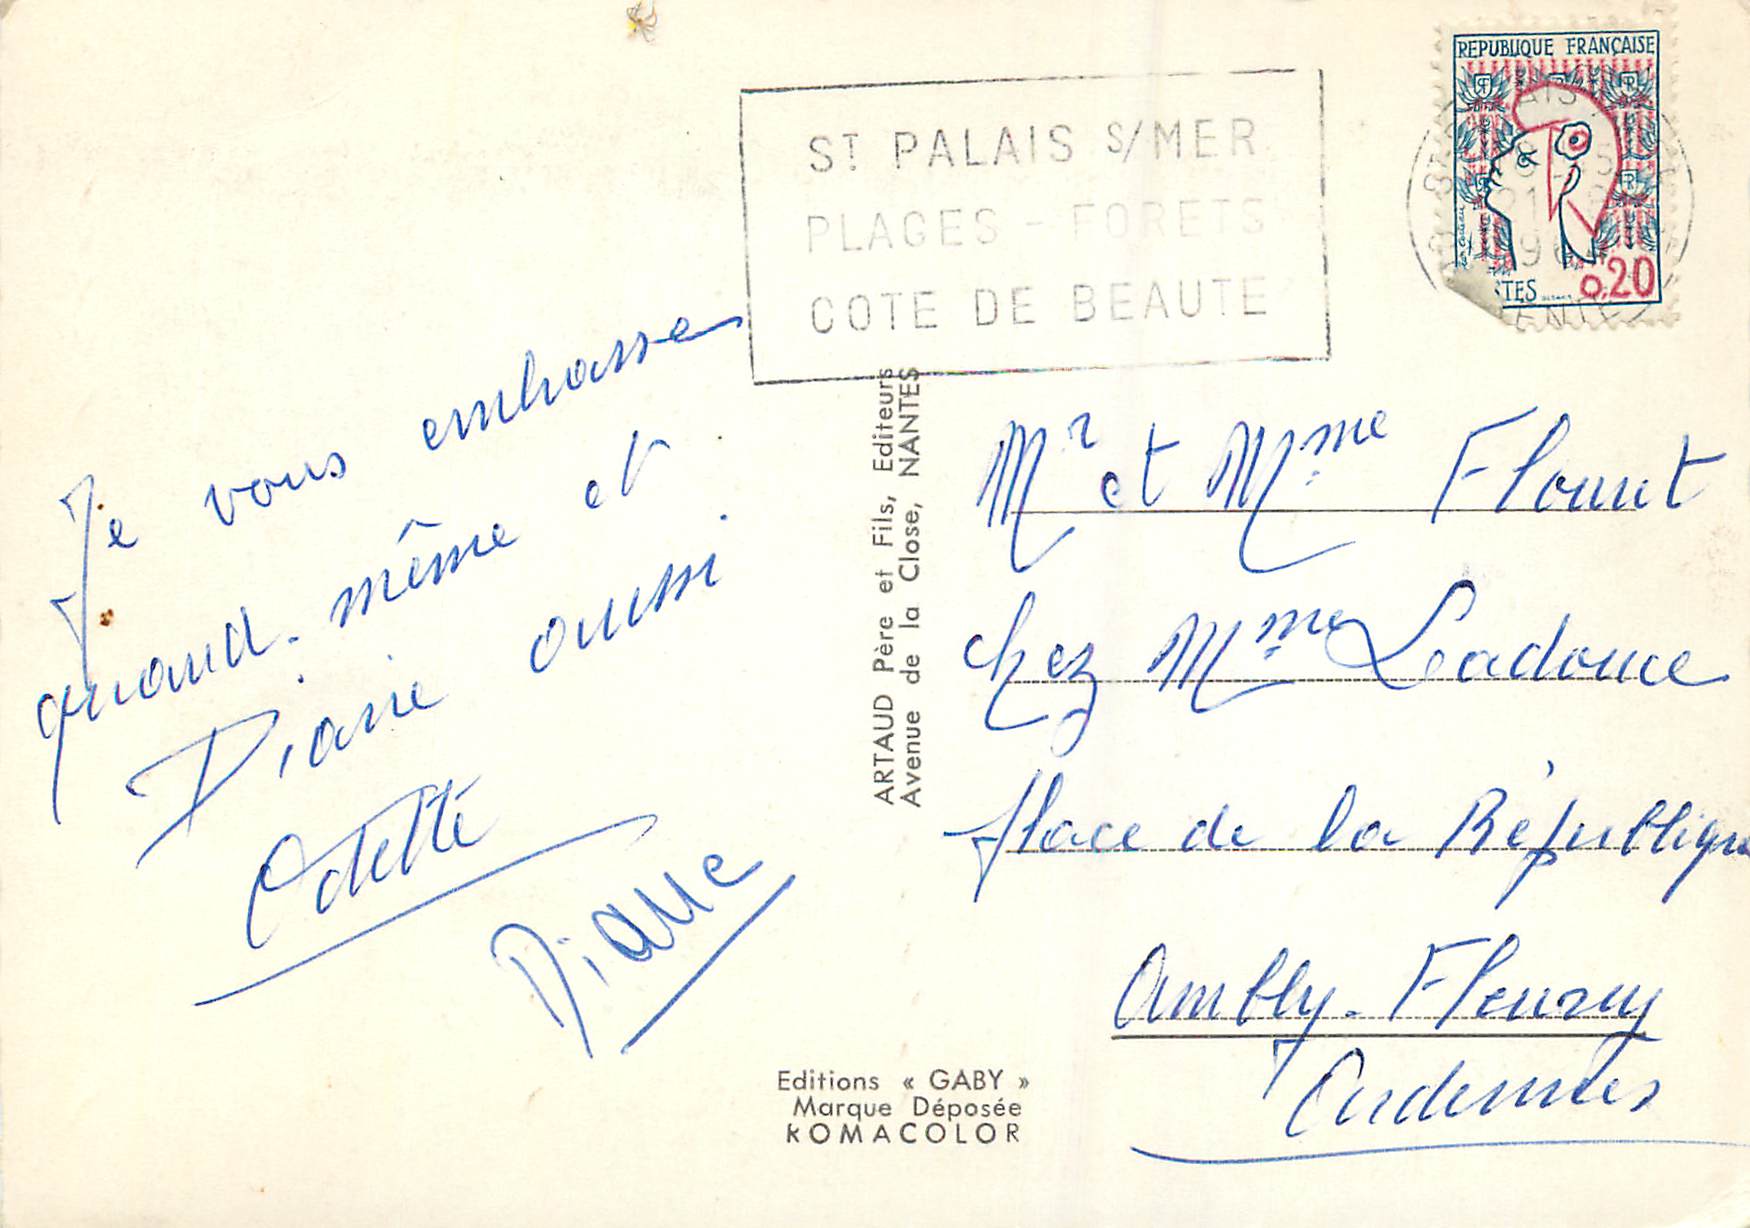 Je vous embrasse
quand-même et
Diane aussi
Odette
Diane
ST PALAIS S/MER
PLAGES - FORETS
COTE DE BEAUTE
REPUBLIQUE FRANÇAISE
0,20
ARTAUD Père et Fils, Editeurs
Avenue de la Close, NANTES
Mr et Mme Flouut
chez Mme Ladouce
place de la République
Ambly-Fleury
Ardennes
Editions « GABY »
Marque Déposée
ROMACOLOR